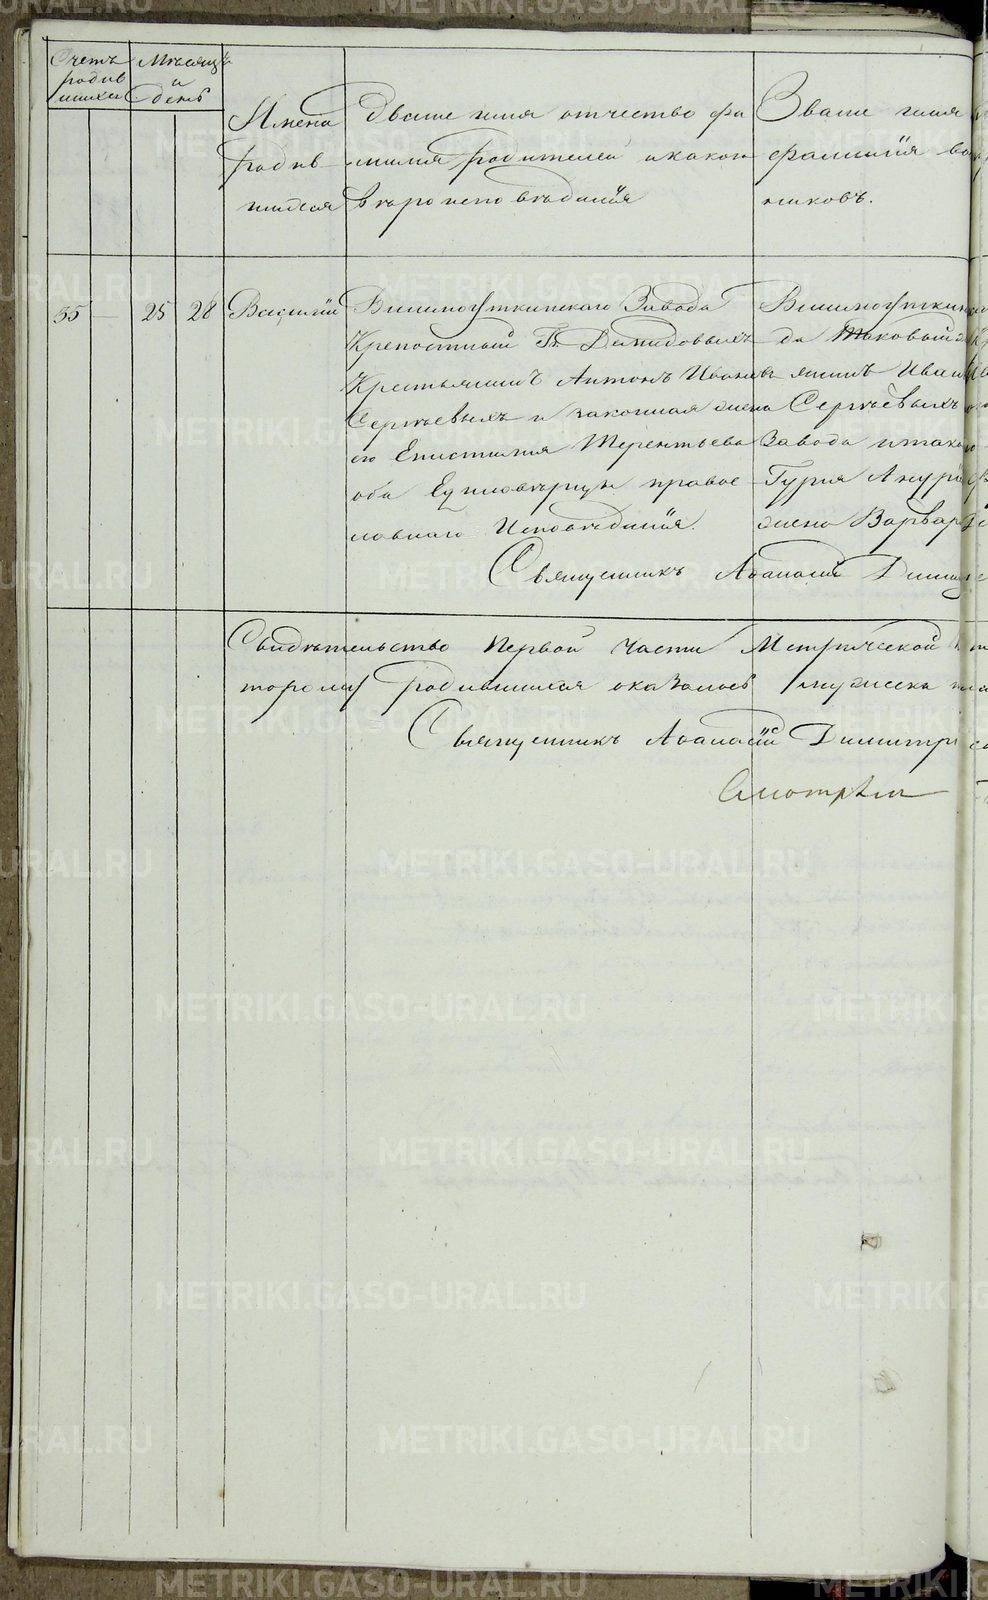 METRIKI.GASO-URAL.RU
Счетъ
родив
шихся
Мѣсяцъ
и
День
Имена
родив
шихся
Званіе имя отчество фа
милия родителей и какой
вѣроисповѣданія
Званіе имя
фамилія
никовъ.
35 25 28 Василий
Висимоуткинскаго Завода
Крепостный Гг. Демидовыхъ
Крестьянинъ Антонъ Ивановъ
Сергѣевыхъ и законная жена
его Епистимия Терентьева
оба Единовѣрцы правос
лавнаго Исповѣданія.
Висимоуткинс
да Таковый
янинъ Иван
Сергѣевыхъ
Завода и такова
Гурия Ануф
жена Варвар
Священникъ Афанасій Димит
Свидѣтельство Первой Части Метрической
торому Родившихся оказалось мужеска
Священникъ Афанасій Димитр
Смотрѣлъ